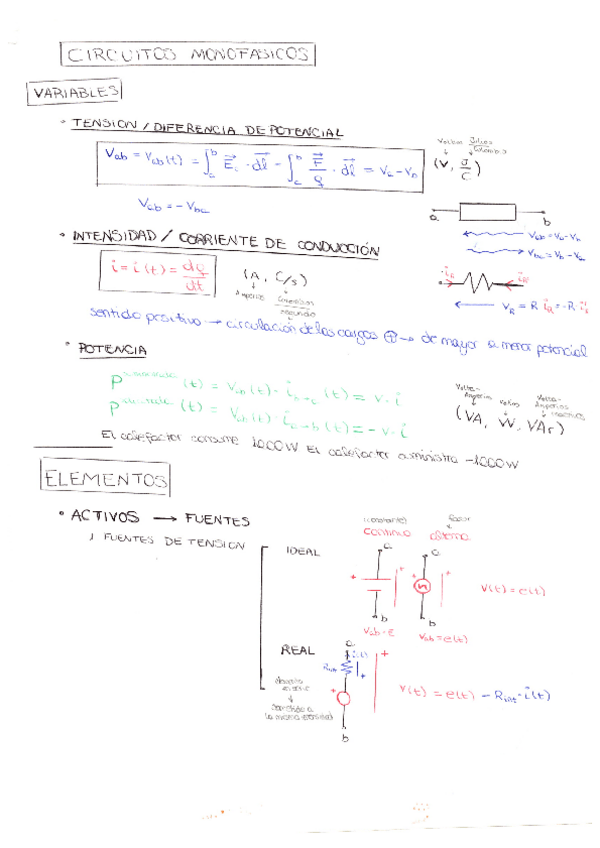 CIRCUITOS MONOFASICOS
VARIABLES
• TENSION / DIFERENCIA DE POTENCIAL
Vab = Vab(t) = ∫ₐᵇ E⃗ᵢ · dl⃗ - ∫ₐᵇ F⃗/q · dl⃗ = Va - Vb
(V, J/C)
Voltios Julios
Vab = - Vba
a b
Vab = Va - Vb
Vba = Vb - Va
• INTENSIDAD / CORRIENTE DE CONDUCCIÓN
i = i(t) = dq/dt
(A, C/s)
Amperios Culombios
segundo
-iR iR
VR = R iR = -R i
sentido positivo → circulación de las cargas ⊕ → de mayor a menor potencial
• POTENCIA
(t) = Vab(t) · i (t) = v · i
(t) = Vab(t) · i a→b (t) = - v · i
Volta-
Amperios Vatios Volta-
Amperios
reactivos
(VA, W, VAr)
El calefactor consume 1000W El calefactor suministra -1000W
ELEMENTOS
• ACTIVOS → FUENTES
1 FUENTES DE TENSION
IDEAL
(constante)
continua
fasor
alterna
a a
+ + + +
b b
Vab = E
Vab = e(t)
V(t) = e(t)
REAL
a
i(t)
Rint
+ + +
b
V(t) = e(t) - Rint · i(t)